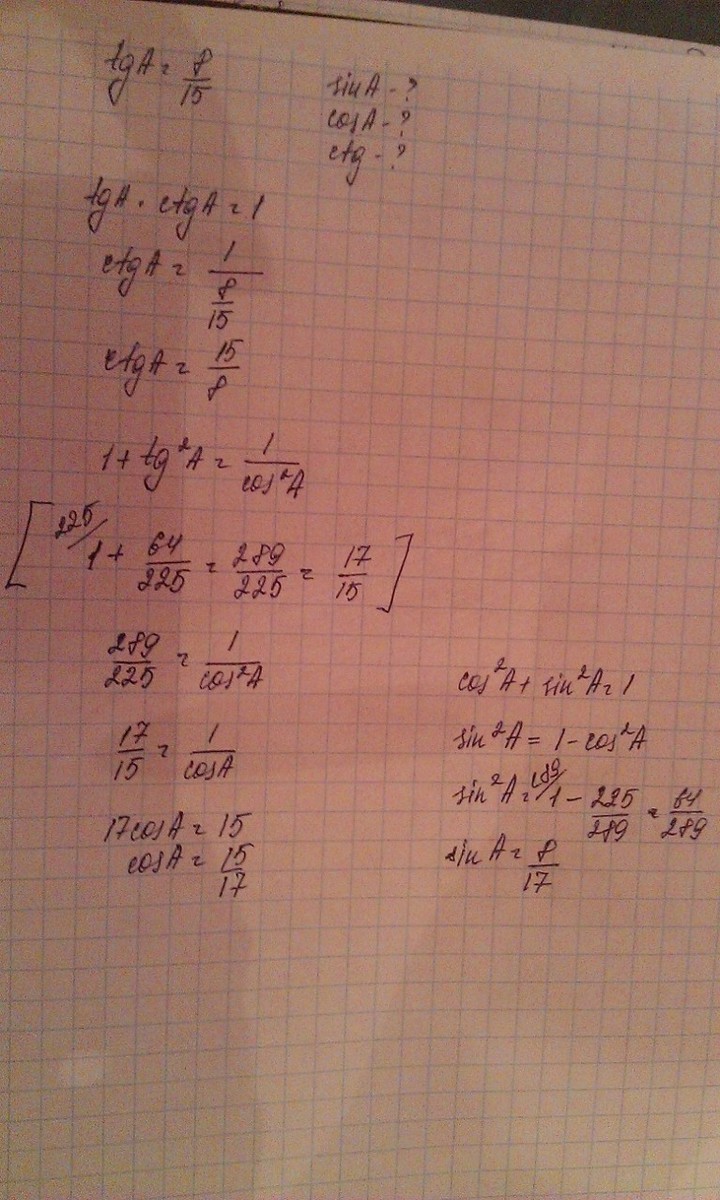 tgA = 8/15
sinA - ?
cosA - ?
ctg - ?
tgA · ctgA = 1
ctgA = 1/(8/15)
ctgA = 15/8
1 + tg²A = 1/cos²A
[ 225/ 1 + 64/225 = 289/225 = 17/15 ]
289/225 = 1/cos²A
17/15 = 1/cosA
17cosA = 15
cosA = 15/17
cos²A + sin²A = 1
sin²A = 1 - cos²A
sin²A = 1 - 225/289 = 64/289
sin A = 8/17